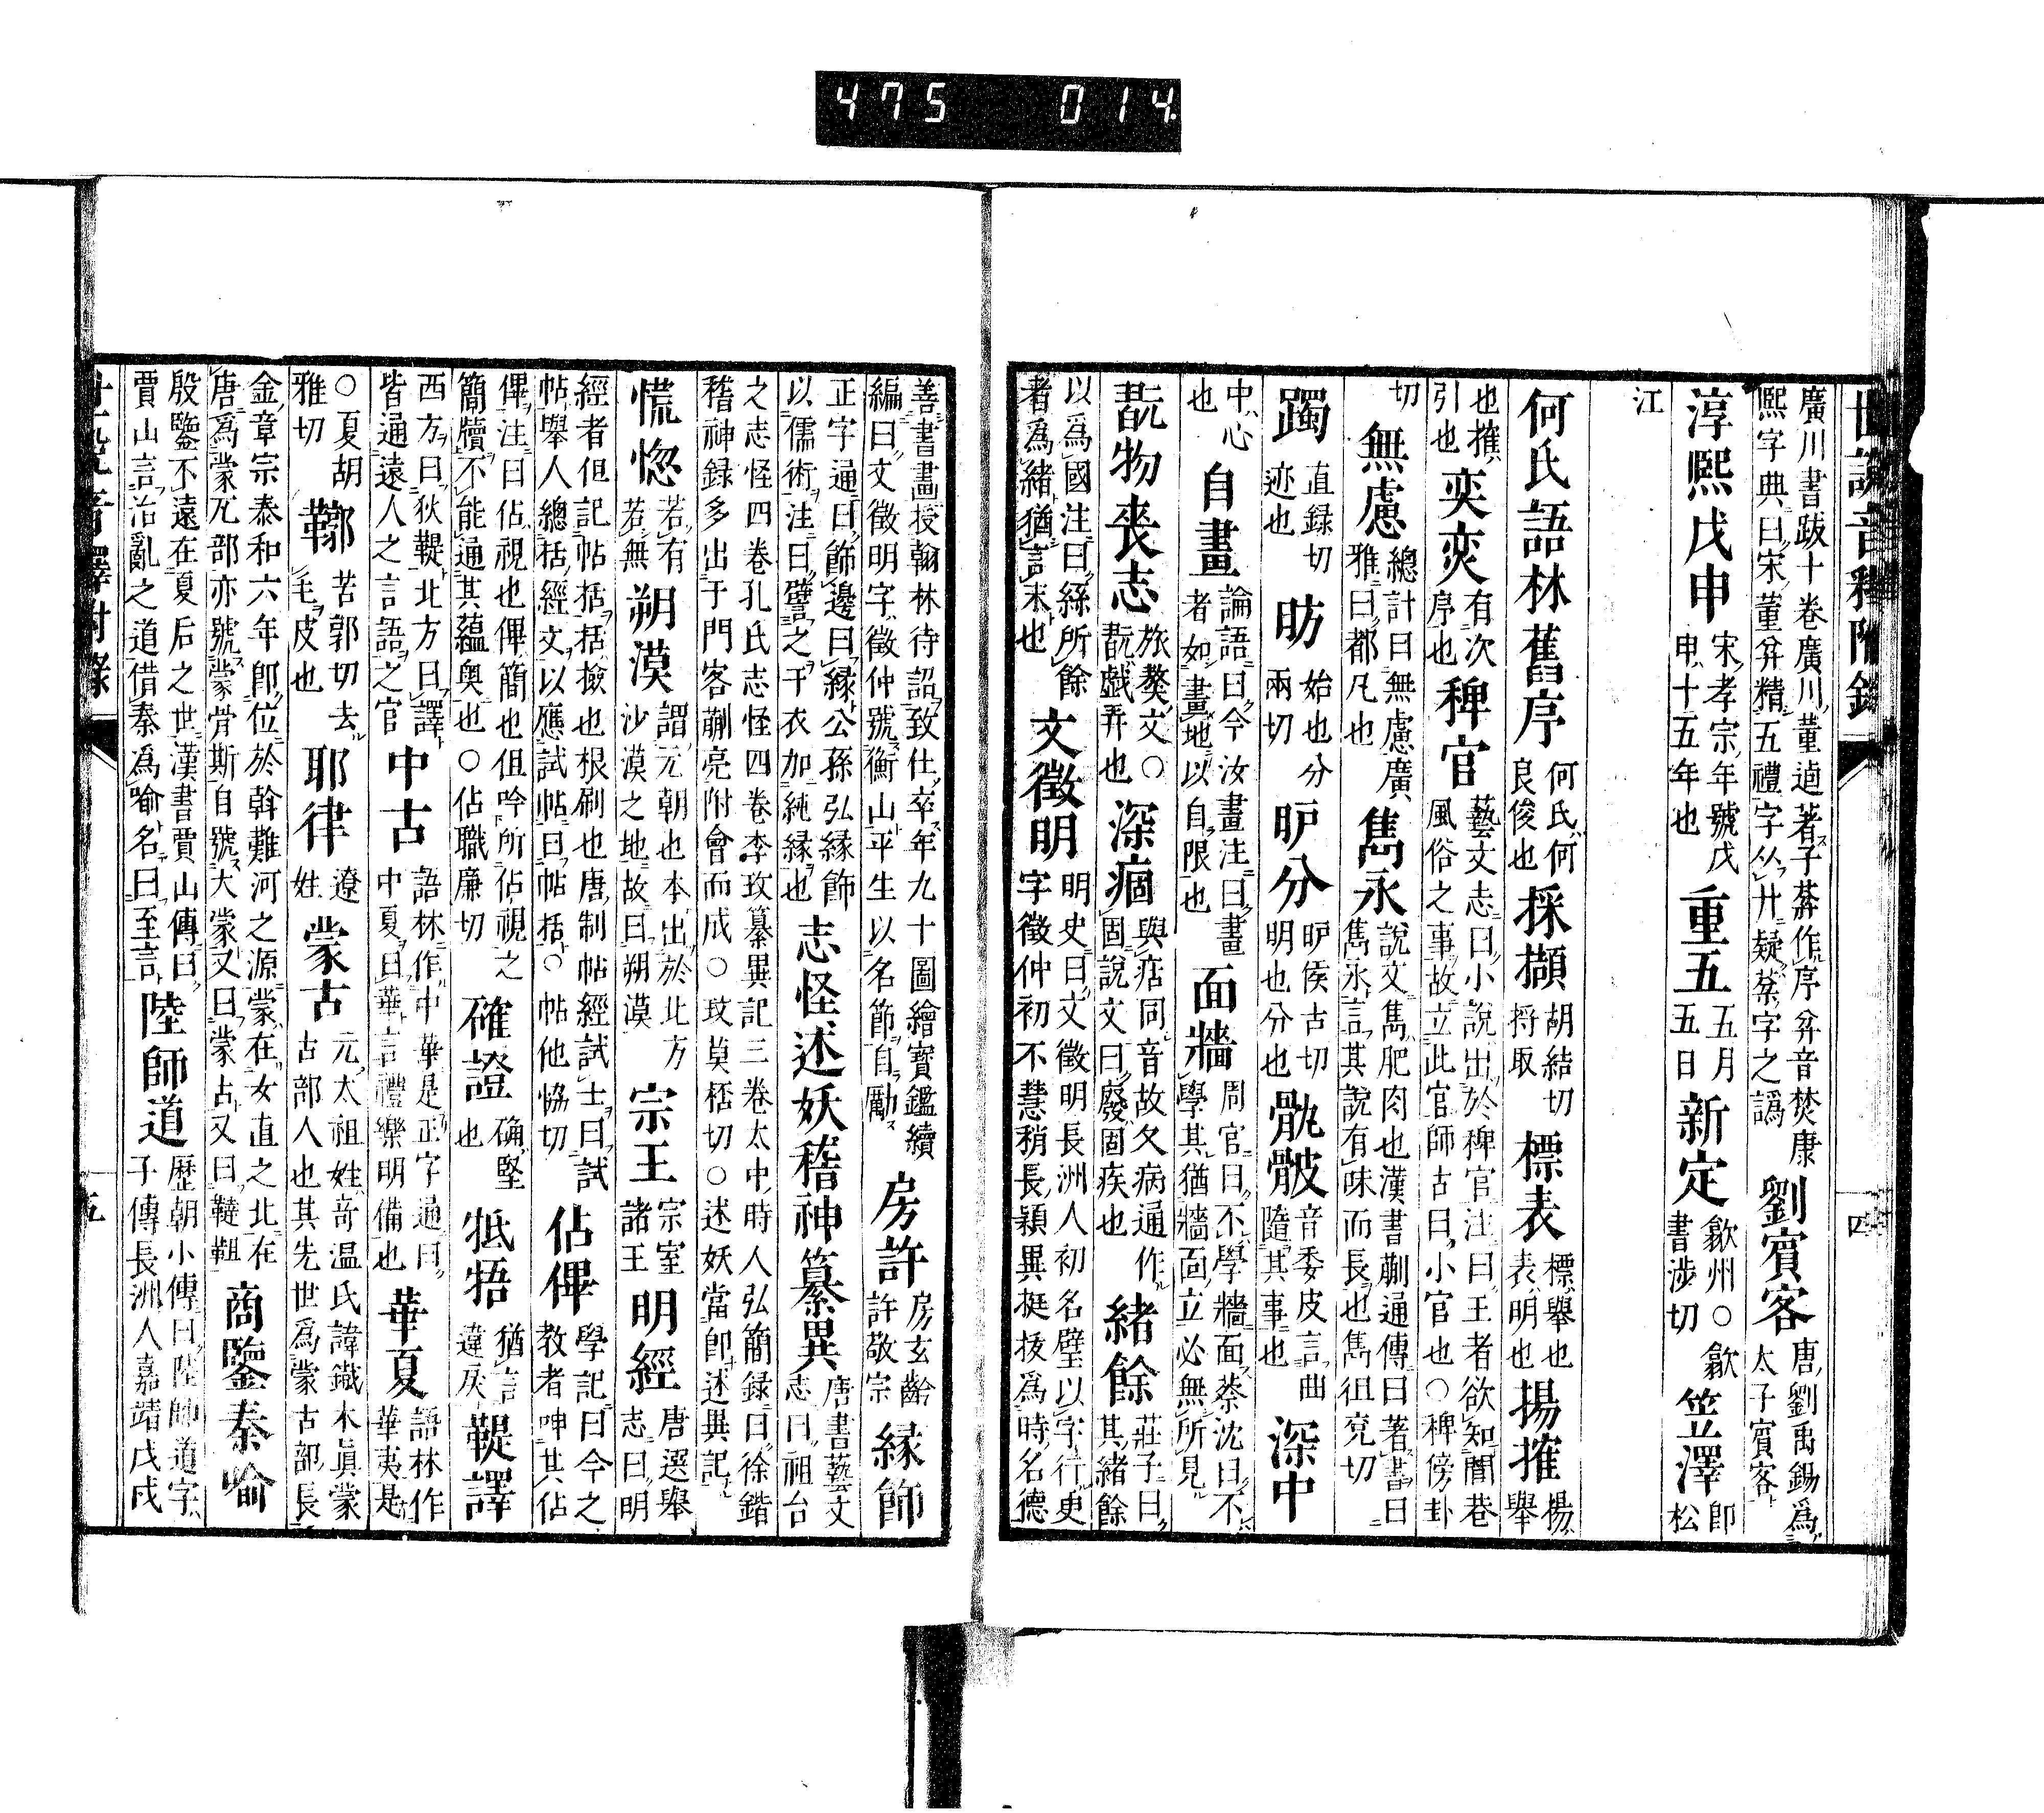 475 014
世說音釋附錄
四
廣川書跋十卷廣川董逌著子棻作序弅音焚康
熙字典曰宋董弅精五禮字从廾疑棻字之譌
劉賓客
唐劉禹錫爲
太子賓客
淳熙戊申
宋孝宗年號戊
申十五年也
重五
五月
五日
新定
歙州○歙
書涉切
笠澤
即
松
江
何氏語林舊序
何氏何
良俊也
採擷
胡結切
捋取
標表
標舉也
表明也
揚搉
揚
舉
也搉
引也
奕奕
有次
序也
稗官
藝文志曰小說出於稗官注曰王者欲知閭巷
風俗之事故立此官師古曰小官也○稗傍卦
切
無慮
總計曰無慮廣
雅曰都凡也
雋永
說文雋肥肉也漢書蒯通傳曰著書曰
雋永言其說有味而長也雋徂兗切
躅
直録切
迹也
昉
始也分
兩切
昈分
昈侯古切
明也分分也
骩骳
音委皮言曲
隨其事也
深中
中心
也
自畫
論語曰今汝畫注曰畫
者如畫地以自限也
面牆
周官曰不學牆面蔡沈曰不
學其猶牆面立必無所見
翫物喪志
旅獒文○
翫戯弄也
深痼
與㽽同音故久病通作
固說文曰廢固疾也
緒餘
莊子曰
其緒餘
以爲國注曰絲所餘
者爲緒猶言末也
文徵明
明史曰文徵明長洲人初名璧以字行更
字徵仲初不慧稍長穎異挺拔爲時名德
善書畫授翰林待詔致仕卒年九十圖繪寶鑑續
編曰文徵明字徵仲號衡山平生以名節自勵
房許
房玄齡
許敬宗
縁飾
正字通曰飾邊曰縁公孫弘縁飾
以儒術注曰譬之干衣加純縁也
志怪述妖稽神纂異
唐書藝文
志曰祖台
之志怪四卷孔氏志怪四卷李玫纂異記三卷太中時人弘簡録曰徐鍇
稽神録多出于門客蒯亮附會而成○玫莫桮切○述妖當即述異記
慌惚
若有
若無
朔漠
謂元朝也本出於北方
沙漠之地故曰朔漠
宗王
宗室
諸王
明經
唐選舉
志曰明
經者但記帖括括撿也根刷也唐制帖經試士曰試
帖舉人總括經文以應試帖曰帖括○帖他恊切
佔俾
學記曰今之
教者呻其佔
俾注曰佔視也俾簡也但吟所佔視之
簡牘不能通其蘊奥也○佔職廉切
確證
确堅
也
牴牾
猶言
違戾
鞮譯
西方曰狄鞮北方曰譯
皆通遠人之言語之官
中古
語林作中華是正字通曰
中夏曰華言禮樂明備也
華夏
語林作
華夷是
○夏胡
雅切
鞹
苦郭切去
毛皮也
耶律
遼
姓
蒙古
元太祖姓竒温氏諱鐡木眞蒙
古部人也其先世爲蒙古部長
金章宗泰和六年即位於斡難河之源蒙在女直之北在
唐爲蒙兀部亦號蒙骨斯自號大蒙又曰蒙古又曰韃靼
商鑒秦喻
殷鑒不遠在夏后之世漢書賈山傳曰
賈山言治亂之道借秦爲喻名曰至言
陸師道
歷朝小傳曰陸師道字
子傳長洲人嘉靖戊戌
世說音釋附錄
五